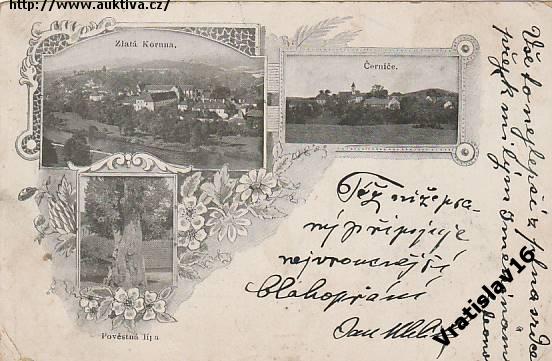 http://www.auktiva.cz/
Zlatá Koruna.
Černíče.
Pověstná lípa
Též níže psa-
ný připojuje
nejvroucnější
blahopřání
Jan
Vše to nejlepší z
srdce
Vratislav16